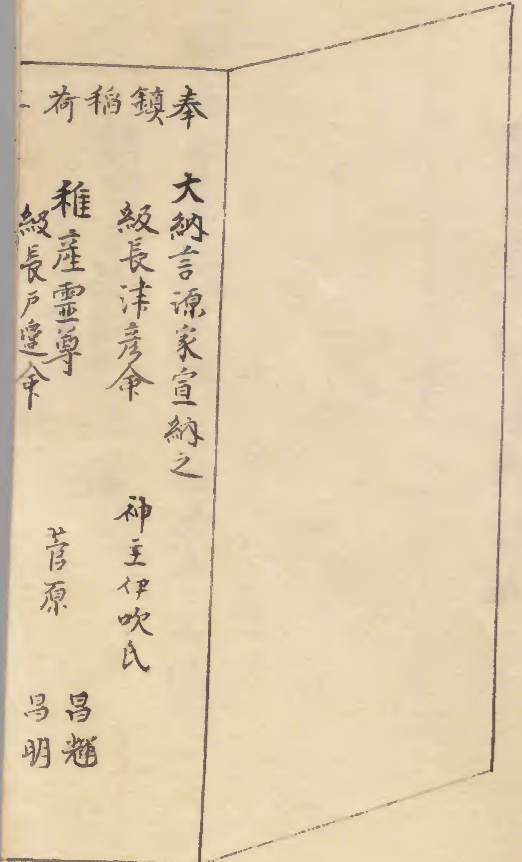 奉鎮稲荷
大納言源家宣納之
級長津彦命 神主伊吹氏
稚産霊尊
級長戸邊命
菅原
昌輝
昌明